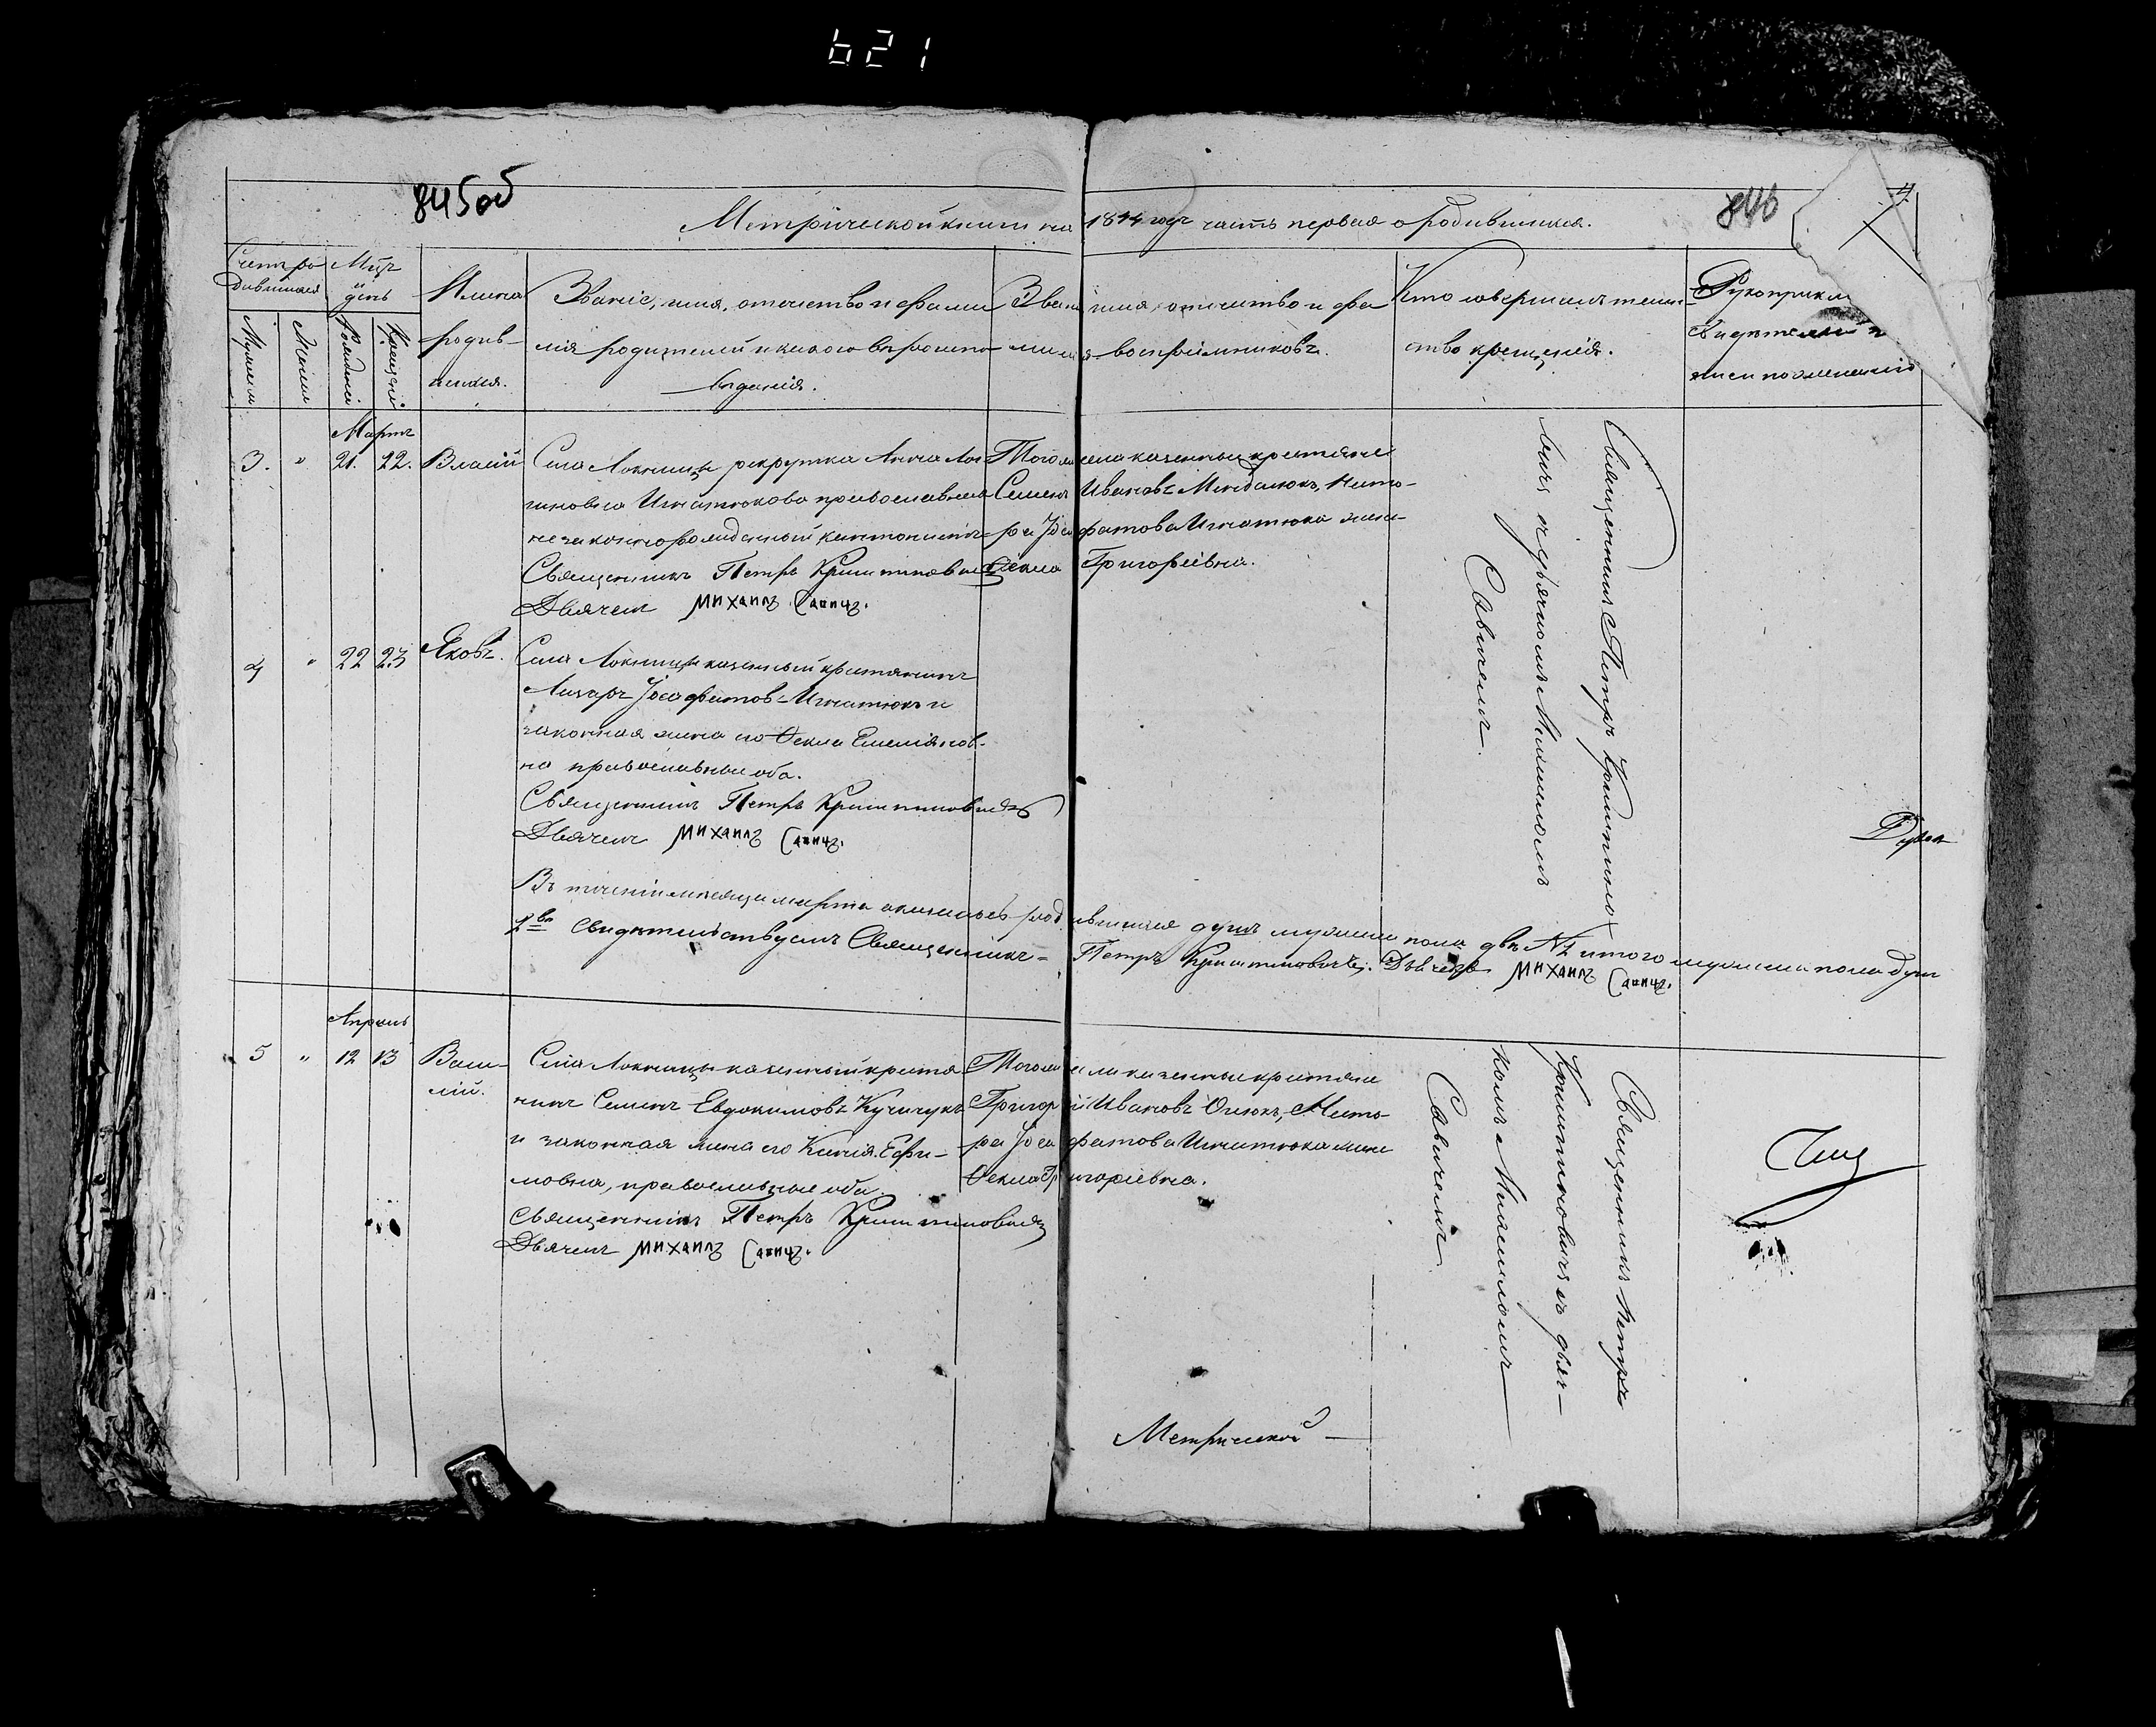 621
845об
846
4
Метрической книги на 1844 годъ часть первая о родившихся.
Счетъ ро-
дившихся
Мцъ
и
день
Имена
родив-
шихся.
Званіе, имя, отчество и фами-
лія родителей и какого вѣроиспо-
веданія.
Званіе имя, отчество и фа-
милія воспріемниковъ.
Кто совершалъ таин-
ство крещенія.
Рукоприкл
свидѣтелей
писи по желанію
Мужеска
Женска
Рожденія
Крещенія
Мартъ
3. " 21. 22. Власій
Села Локницы рекрутка Анна
Игнатюкова православная
незаконнорожденный кантонистъ
Священникъ Петръ Криштиновичъ
Дьячекъ Михаилъ Савичъ.
Того села казенные крестяне
Семенъ Ивановъ Миндалюкъ, Нито-
ра Іосафатова Игнатюка жена
Ѳекла Григоріевна.
Священникъ Петръ Криштино-
вичъ съ дьячкомъ Михаиломъ
Савичемъ.
4 " 22 23 Яковъ.
Села Локницы казенный крестянинъ
Лазаръ Іосафатовъ Игнатюкъ и
законная жена его Ѳекла Емеліянов-
на православные оба.
Священникъ Петръ Криштиновичъ
Дьячекъ Михаилъ Савичъ.
Въ теченіи месяца марта оказалось родившихся душъ мужеска пола двѣ №2 итого мужеска пола душ
2ве Свидетельствуемъ Священникъ Петръ Криштиновичъ. Дьячекъ Михаилъ Савичъ.
Апрель
5 " 12 13 Васи-
лій.
Села Локницы казенный крестя-
нинъ Семенъ Евдокимовъ Кучинукъ
и законная жена его Ксенія Ефи-
мовна, православные оба.
Священникъ Петръ Криштиновичъ
Дьячекъ Михаилъ Савичъ.
Того села казенные крестяне
Григорій Ивановъ Оисюкъ, Нито-
ра Іосафатова Игнатюка жена
Ѳекла Григоріевна.
Священникъ Петръ
Криштиновичъ съ дьяч-
комъ Михаиломъ
Савичемъ
Метрической